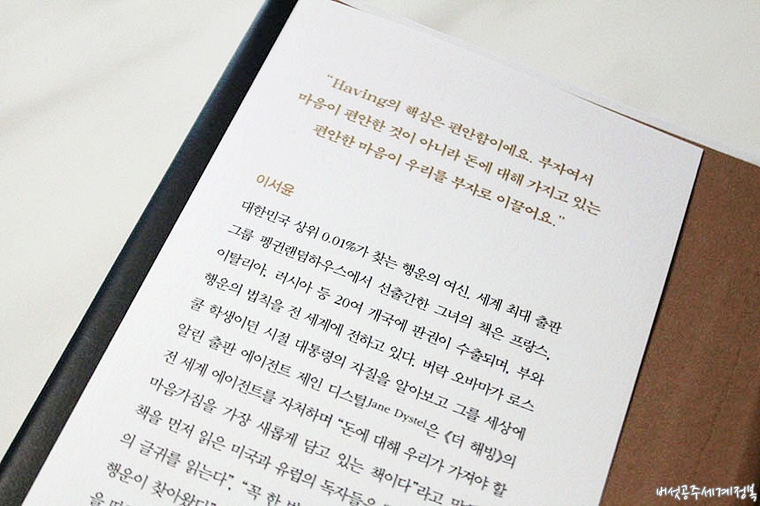 “Having의 핵심은 편안함이에요. 부자여서
마음이 편안한 것이 아니라 돈에 대해 가지고 있는
편안한 마음이 우리를 부자로 이끌어요.”
이서윤
대한민국 상위 0.01%가 찾는 행운의 여신. 세계 최대 출판
그룹 펭귄랜덤하우스에서 선출간한 그녀의 책은 프랑스,
이탈리아, 러시아 등 20여 개국에 판권이 수출되며, 부와
행운의 법칙을 전 세계에 전하고 있다. 버락 오바마가 로스
쿨 학생이던 시절 대통령의 자질을 알아보고 그를 세상에
알린 출판 에이전트 제인 디스털Jane Dystel은 《더 해빙》의
전 세계 에이전트를 자처하며 “돈에 대해 우리가 가져야 할
마음가짐을 가장 새롭게 담고 있는 책이다”라고
책을 먼저 읽은 미국과 유럽의 독자들
의 글귀를 읽는다”, “꼭 한
행운이 찾아왔다”
버섯공주세계정복